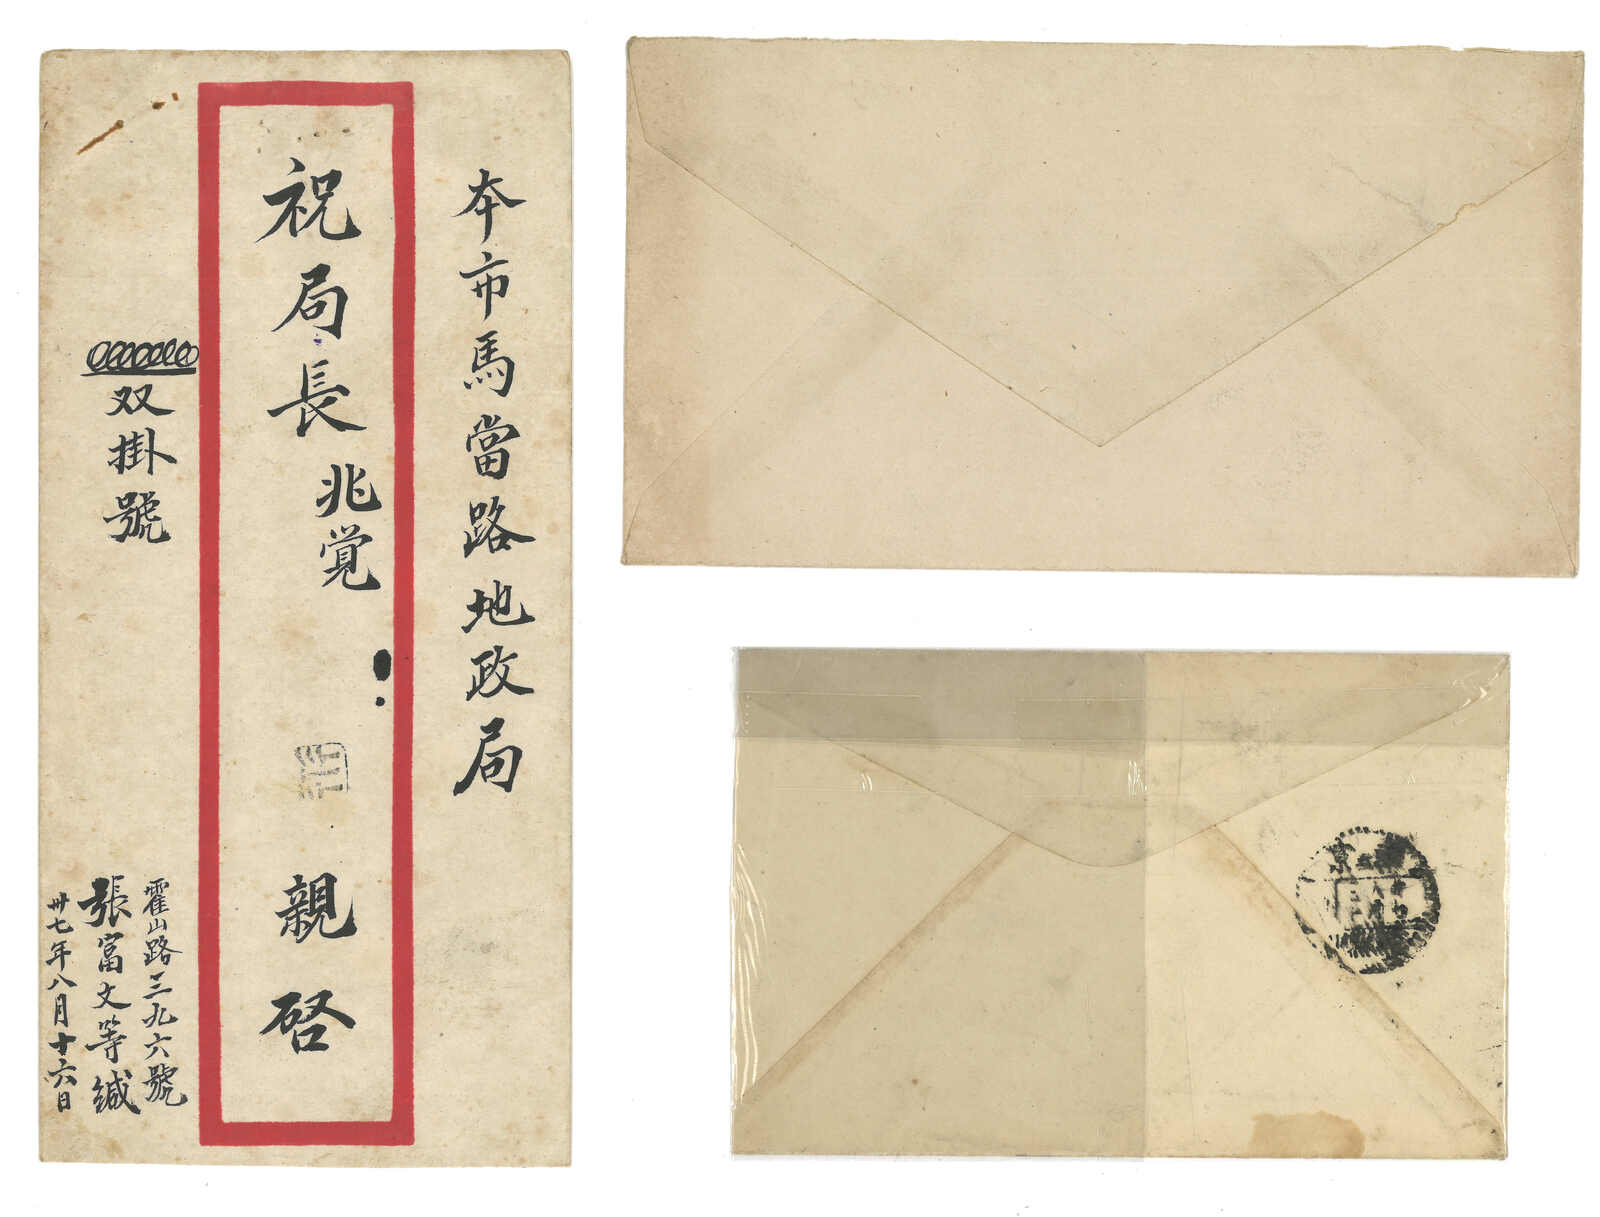 本市馬當路地政局
祝局長兆覚
親啓
双掛號
霍山路三九六號
張富文等緘
卅七年八月十六日
京